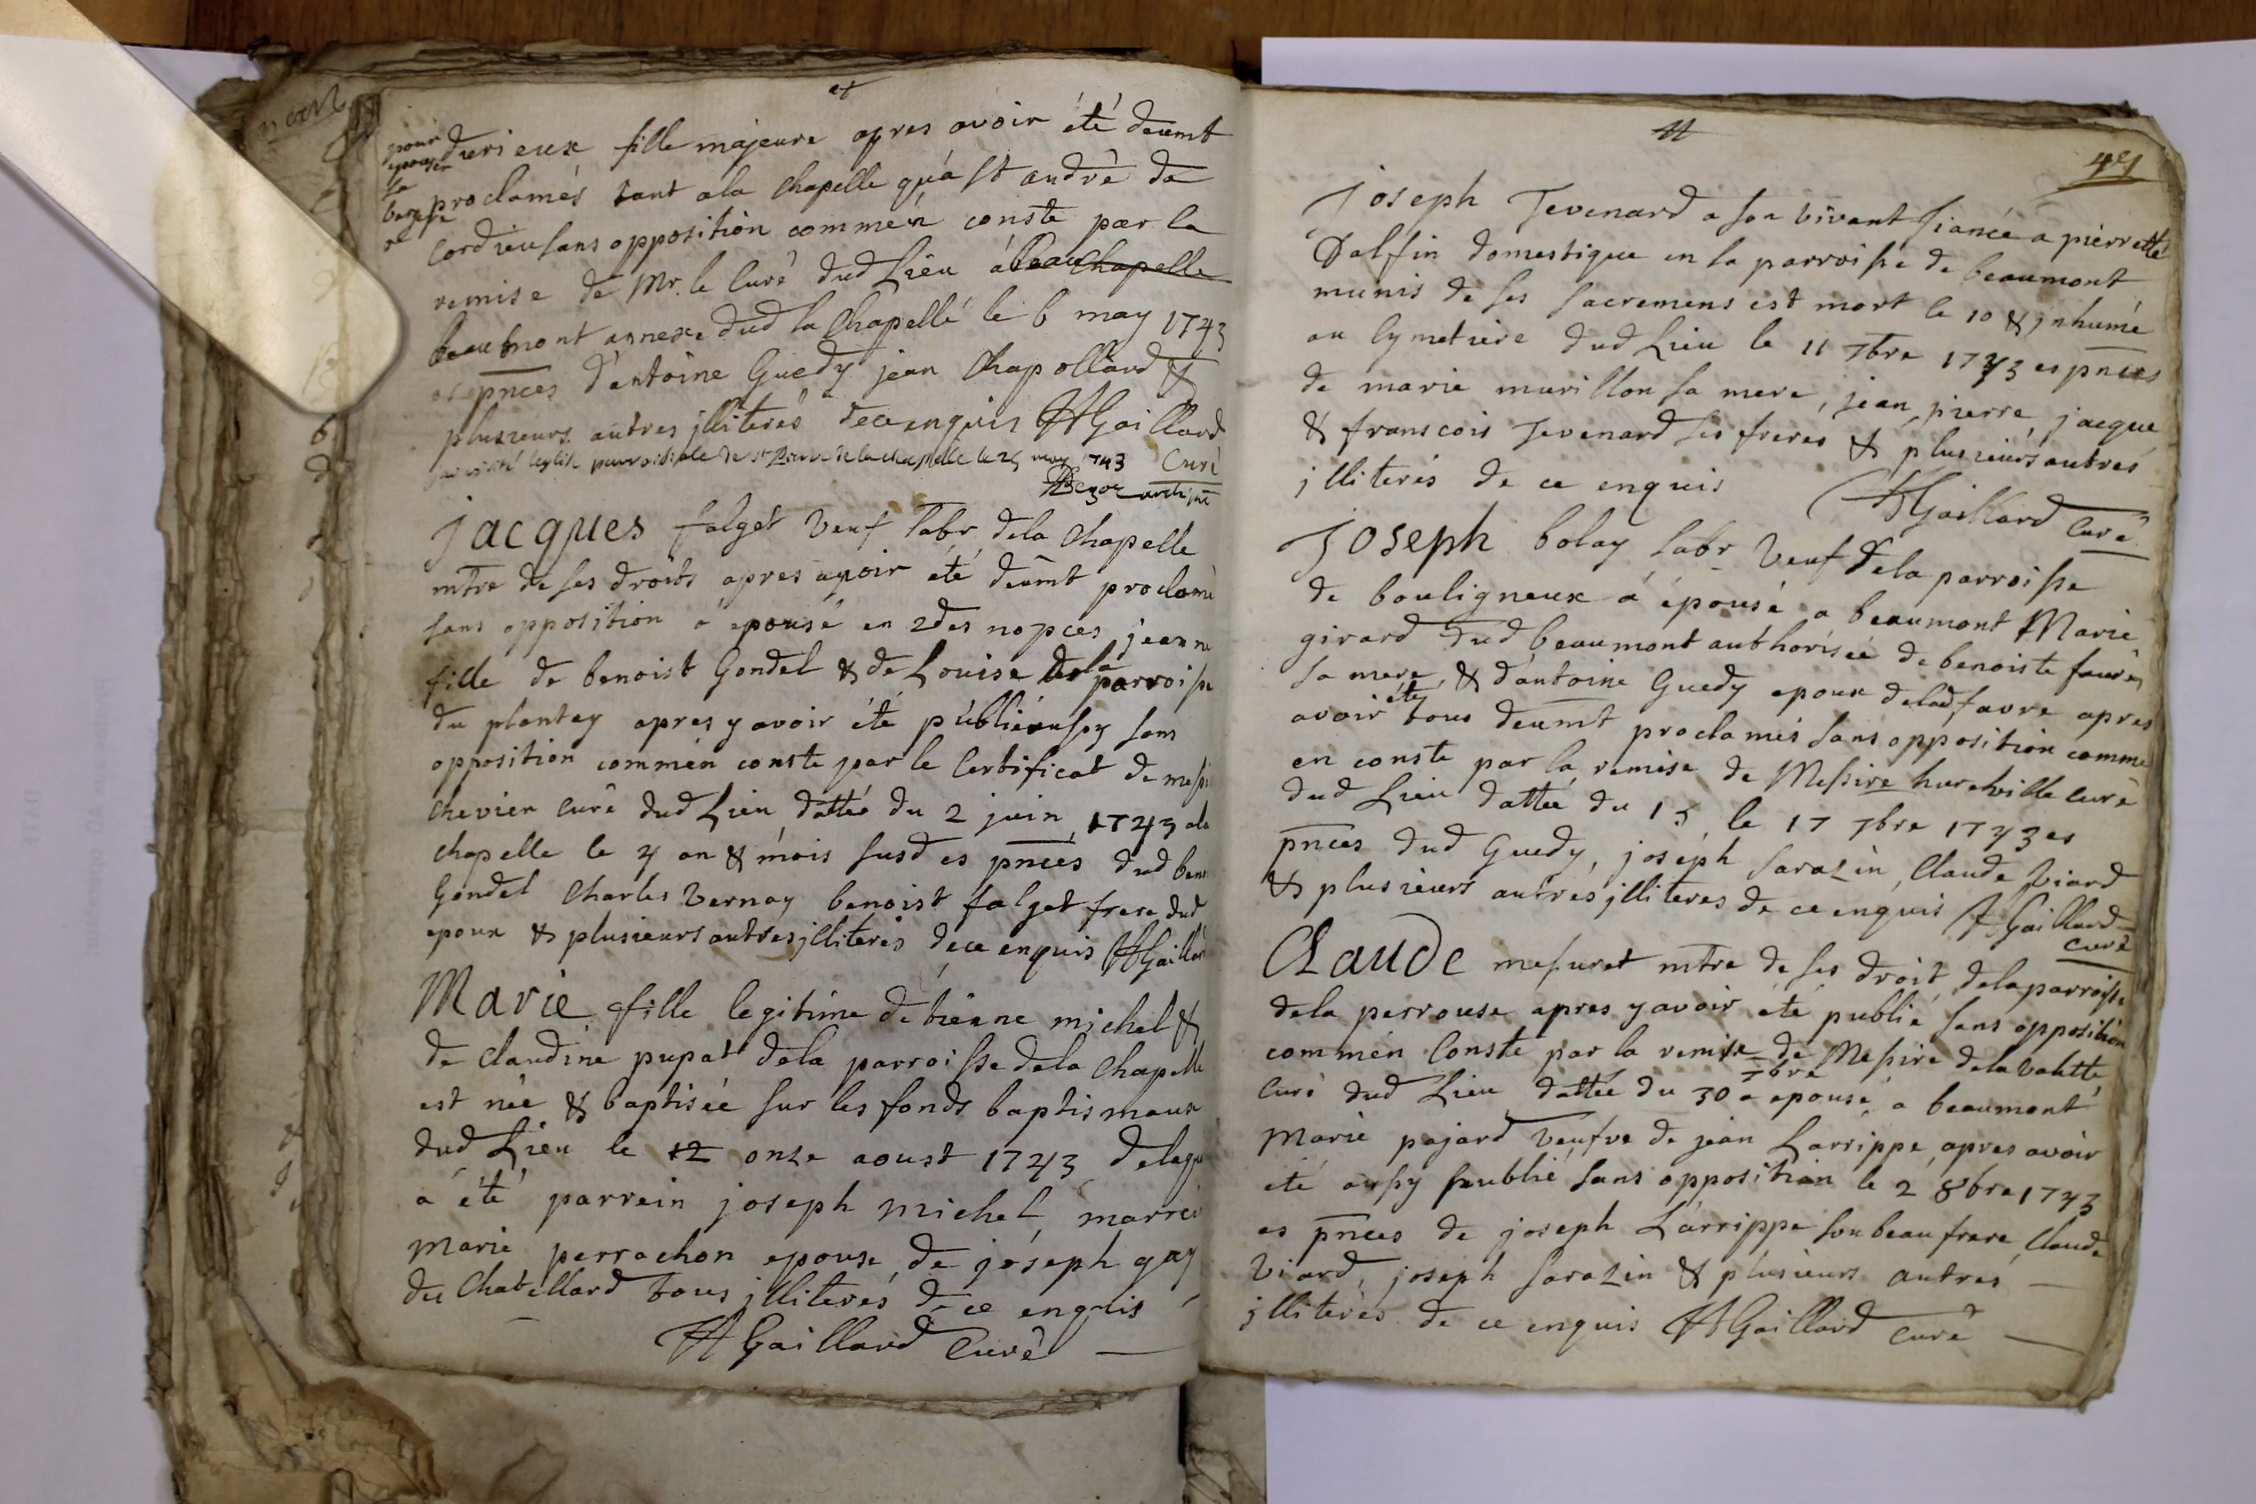 pour
epouser
la
durieux fille majeure apres avoir été deumt
proclamés tant ala Chapelle qu'á st andrè de
Cordieu sans opposition comm'en conste par la
remise de Mr. le Curé dud Lieu á Beau Chapelle
beaumont annexe dud la Chapelle le 6 may 1743
es pnces d'antoine Guedy jean Chapollard &
plusieurs autres jlliterés de ce enquis HGaillard
Curé
parroissiale de st de la chapelle le 25 may 1743
Jacques falget veuf labr dela Chapelle
mtre de ses droits apres avoir été deumt proclamé
sans opposition a epousé en 2des nopces jeanne
fille de benoist Gondel & de Louise de la parroisse
du plantay apres y avoir été publié aussy sans
opposition comm'en conste par le Certificat de messi
Chevier Curé dud Lieu dattée du 2 juin 1743 ala
Chapelle le 4 an & mois susd es pnces dud ben
Gondel Charles Vernay benoist falget frere dud
epoux & plusieurs autres jlliterés de ce enquis HGaillar
Marie fille legitime detienne michel &
de Claudine pupat dela parroisse dela Chapelle
est née & baptisée sur les fonds baptismaux
dud Lieu le 12 onze aoust 1743 delaqu
a été parrein joseph michel marrei
Marie perrachon epouse de joseph gay
du Chatellard tous jlliterés de ce enquis
HGaillard Curé
Joseph Tevenard a son vivant fiancé a pierrette
Dalfin domestique en la parroisse de beaumont
munis de ses sacremens est mort le 10 & jnhumé
au Cymetiere dud Lieu le 11 7bre 1743 es pnces
de marie murillon sa mere, jean, pierre, jacque
& franscois Tevenard ses freres & plusieurs autres
jlliterés de ce enquis HGaillard Curé
Joseph bolay labr veuf dela parroisse
de bouligneux á épousé a beaumont Marie
girard dud beaumont authorisée de benoiste faure
sa mere, & d'antoine Guedy epoux delad favre apres
avoir été tous deumt proclamés sans opposition comme
en conste par la remise de Messire hurchville Curé
dud Lieu dattée du 15 le 17 7bre 1743 es
pnces dud Guedy, joseph sarazin, Claude Viard
& plusieurs autres jlliteres de ce enquis HGaillard
Curé
Claude mesuret mtre de ses droit dela parroisse
dela perrouse apres y avoir été publié sans opposition
comm'en Conste par la remise de Messire delavalette
Curé dud Lieu dattée du 30 7bre a epousé a beaumont
Marie pajard veufve de jean Larrippe apres avoir
été aussy publié sans opposition le 2 8bre 1743
es pnces de joseph Larrippe son beau frere, Claude
Viard, joseph sarazin & plusieurs autres
jlliterés de ce enquis HGaillard Curé